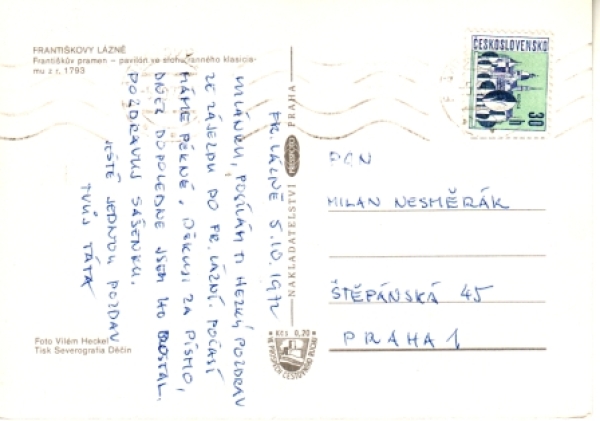 FRANTIŠKOVY LÁZNĚ
Františkův pramen – pavilón ve slohu ranného klasicis-
mu z r. 1793
FR. LÁZNĚ 5.10.1972
MILÁNKU, POSÍLÁM TI HEZKÝ POZDRAV
ZE ZÁJEZDU DO FR. LÁZNÍ. POČASÍ
MÁME PĚKNÉ, DĚKUJI ZA PÍSMO,
DNES DOPOLEDNE JSEM HO DOSTAL.
POZDRAVUJ SAŠENKU.
JEŠTĚ JEDNOU POZDRAV
TVŮJ TÁTA
Foto Vilém Heckel
Tisk Severografia Děčín
NAKLADATELSTVÍ PRESSFOTO PRAHA
Kčs 0,20
ČESKOSLOVENSKO
30 h
PAN
MILAN NESMĚRÁK
ŠTĚPÁNSKÁ 45
PRAHA 1